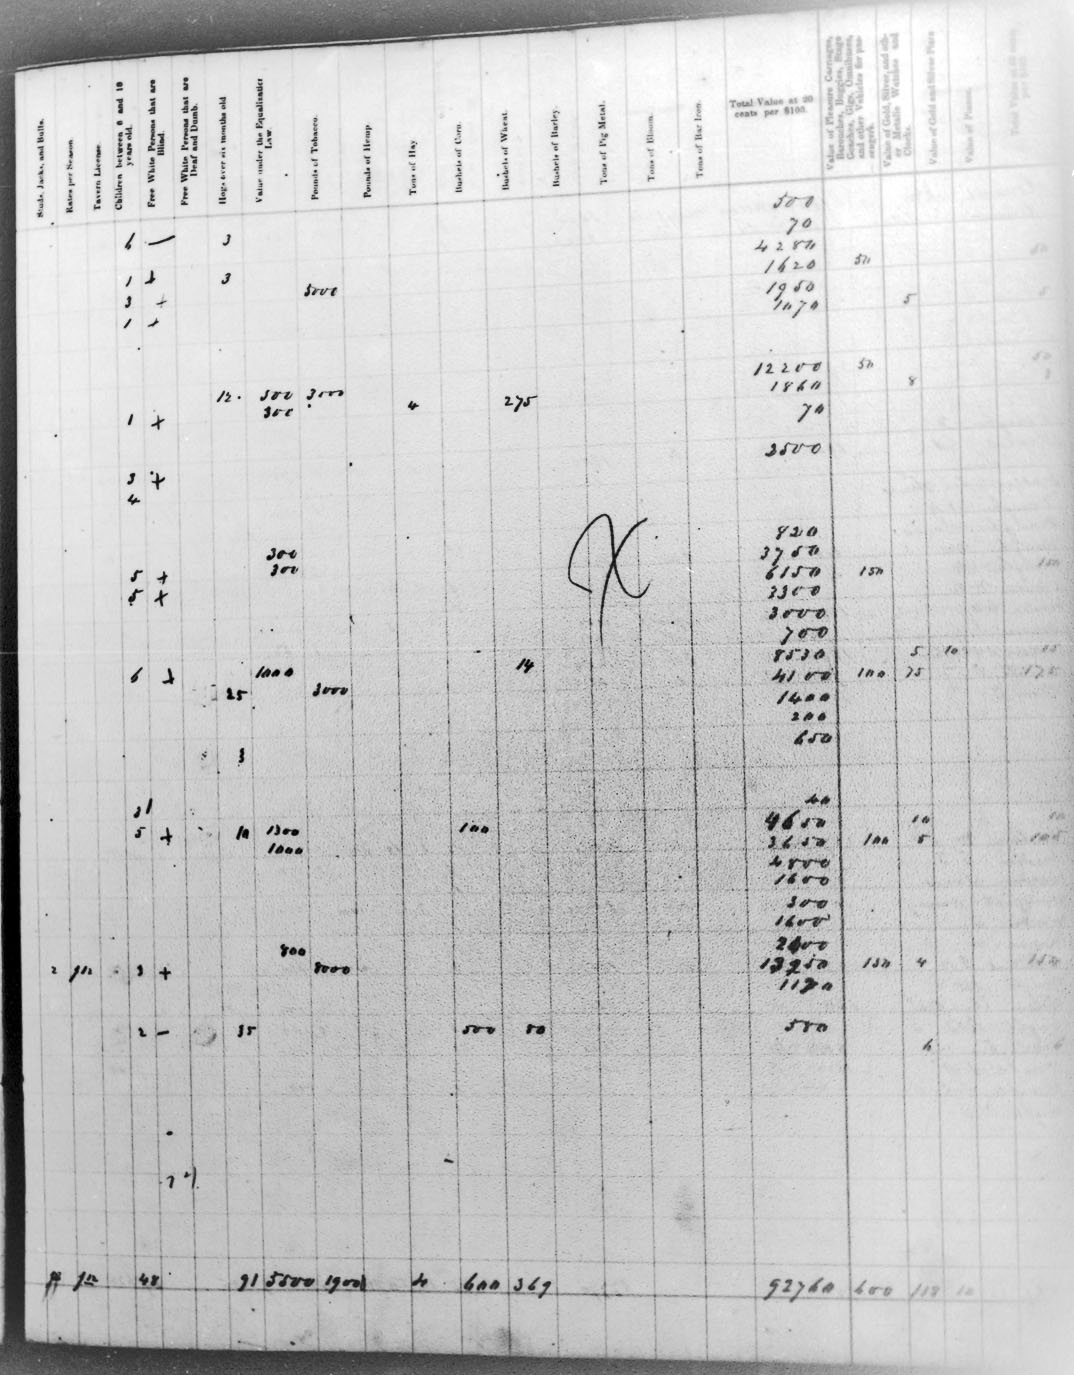 Studs, Jacks, and Bulls.
Rates per Season
Tavern License.
Children between 6 and 18 years old.
Free White Persons that are Blind.
Free White Persons that are Deaf and Dumb.
Hogs over six months old
Value under the Equalization Law.
Pounds of Tobacco.
Pounds of Hemp
Tons of Hay
Bushels of Corn.
Bushels of Wheat.
Bushels of Barley.
Tons of Pig Metal.
Tons of Bloom.
Tons of Bar Iron.
Total Value at 20 cents per $100.
Value of Pleasure Carriages, Barouches, Buggies, Stage Coaches, Gigs, Omnibuses, and other Vehicles for passengers.
Value of Gold, Silver, and other Metalic Watches and Clocks.
Value of Gold and Silver Plate
Value of Pianos.
500
70
6 — 3 4280
1620 50
1 + 3
5000 1950
3 + 1070 5
1 +
12200 50
1860 8
12 500 3000
300 4 275 70
1 +
2500
3 +
4
820
300 3750
5 + 300 6150 150
5 + 3300
3000
700
8530 5 10
6 + 1000 14 4100 100 75
25 3000 1400
200
3 650
40
4650 10
5 + 10 1300 100 3650 100 5
1000
4800
1600
300
1600
800 2400
2 3 + 8000 13250 150 4
2 — 35 500 80 580
6
48 91 5500 4 600 369 92760 600 118 10